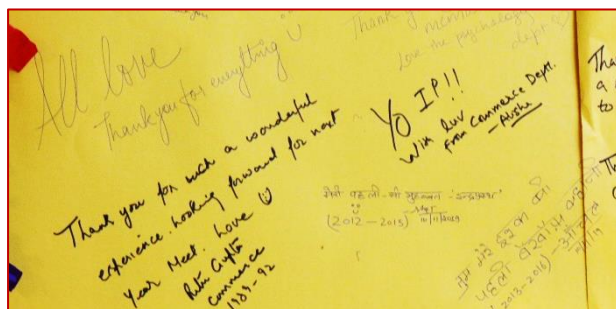 All love
Thankyou for everything
Thank
Love the psychology
dept.
YO IP!!
With luv
from Commerce Deptt.
Thank you for such a wonderful
experience. Looking forward for next
Year Meet. Love
Ritu Gupta
Commerce
1989-92
मेरी पहली-सी मुहब्बत 'इन्द्रप्रस्थ'
(2012-2015)
Tha
a
to
Th
तुम मेरे इश्क का
पहली
2013-2016)